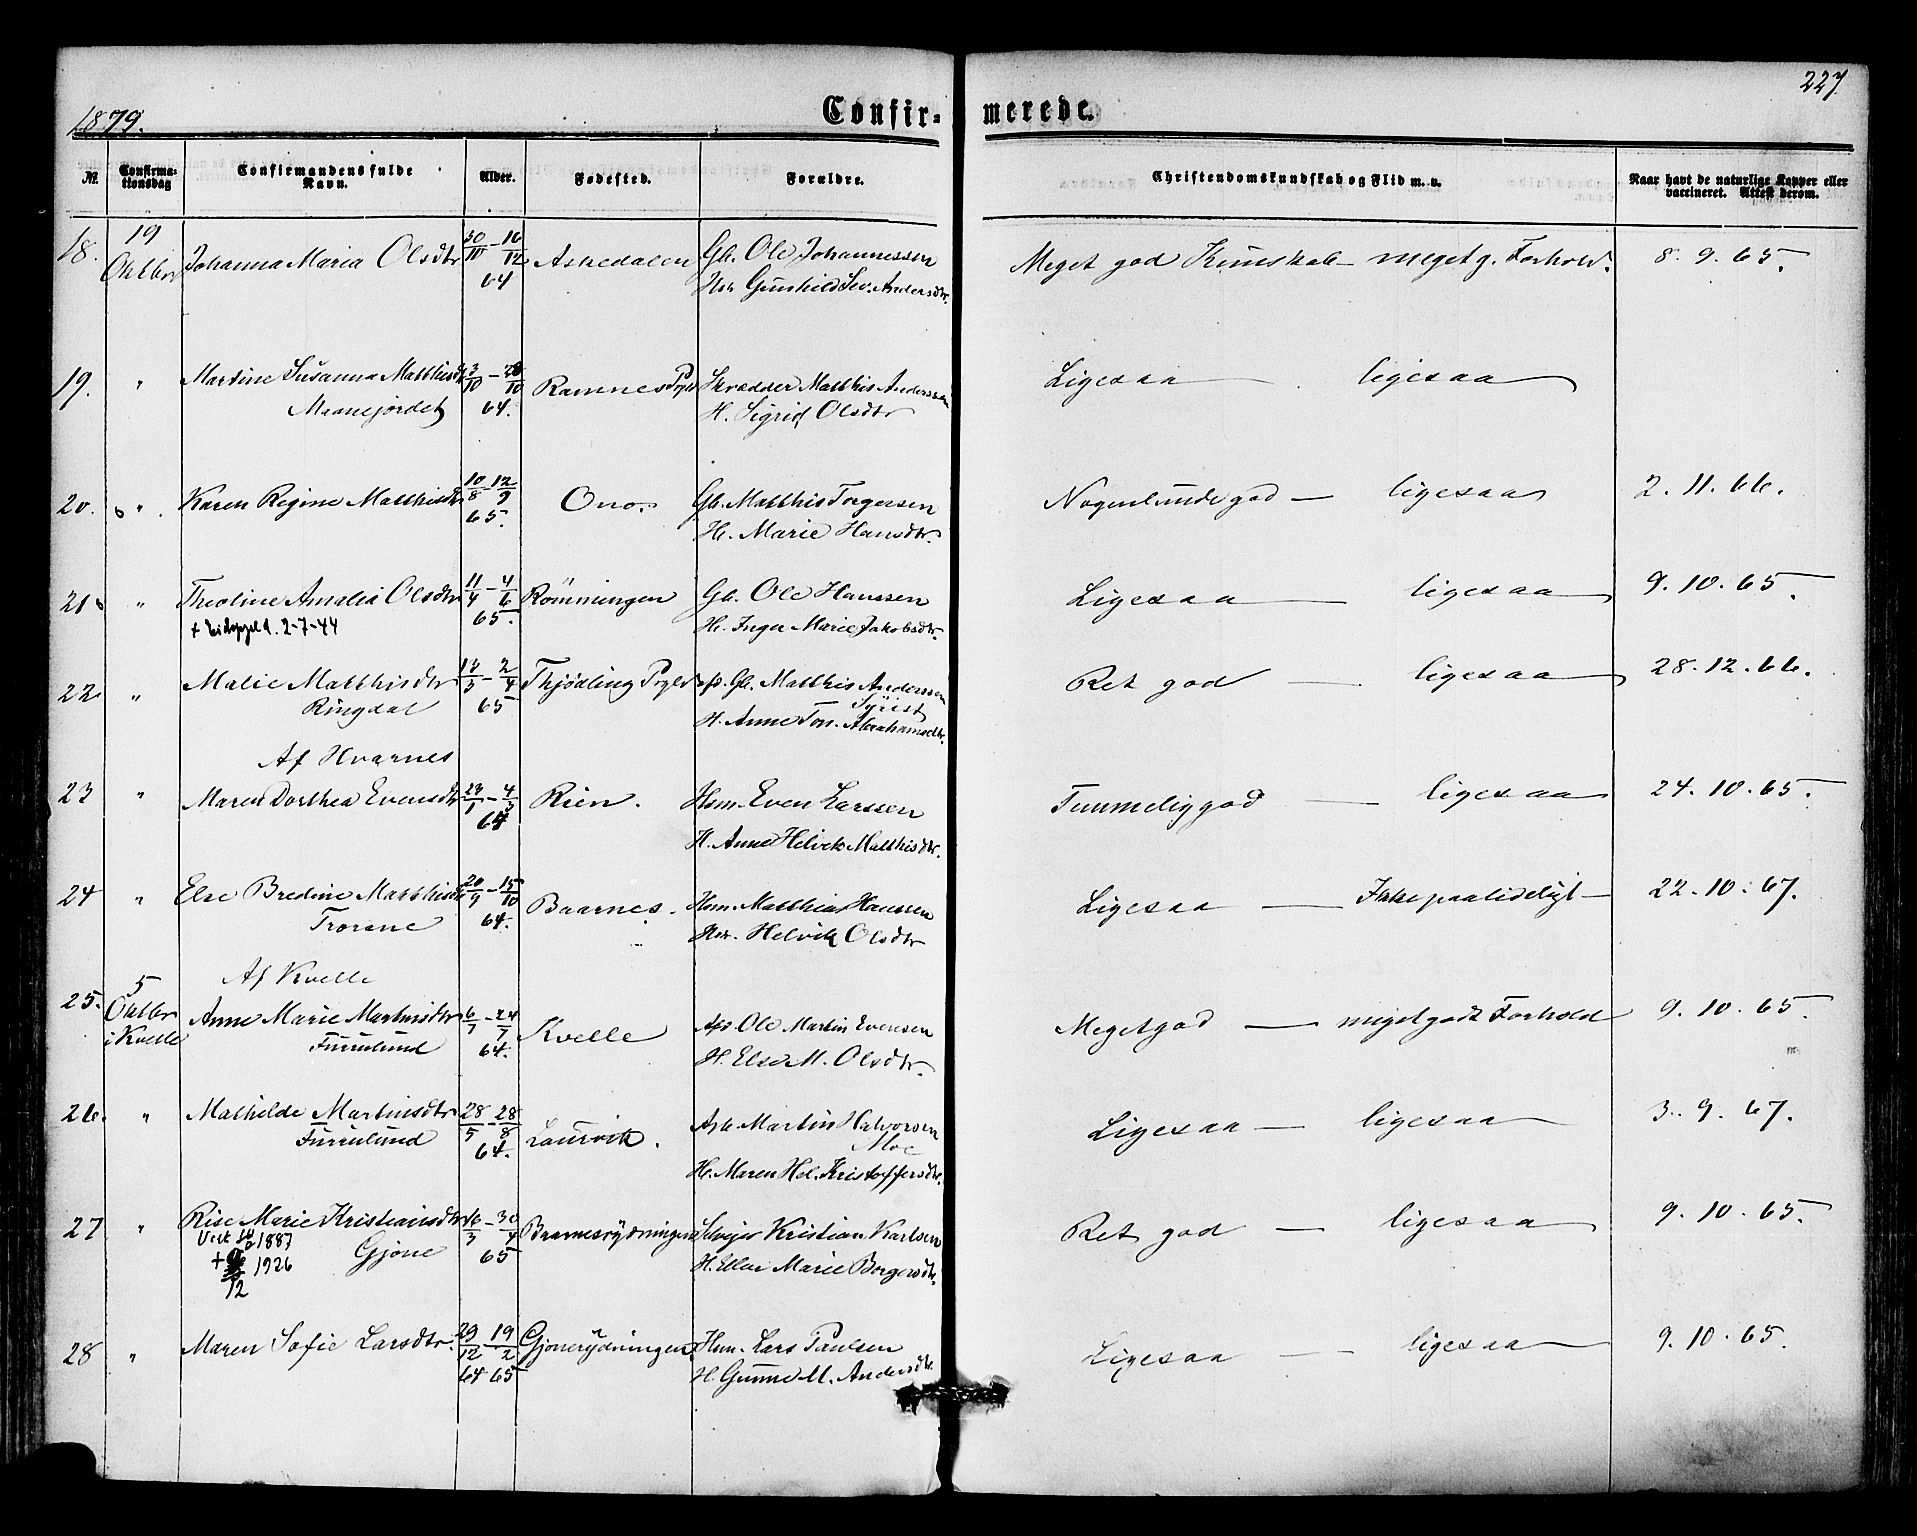 1879.
Confir-
merede.
227
№
Confirma-
tionsdag
Confirmandens fulde
Navn.
Alder.
Fødested.
Forældre.
Christendomskundskab og Flid m. v.
Naar havt de naturlige Kopper eller
vaccineret. Attest derom.
18. 19 Oktbr Johanna Maria Olsdtr 30/10 - 16/12 64 Askedalen Gb. Ole Johannessen
H. Gunhild Sev. Andersdtr.
Meget god Kundskab - meget g. Forhold. 8. 9. 65.
19. " Martine Susanna Matthisdtr 3/10 - /10 64. Ramnes Skrædder Matthis Anderssen
Maanejordet H. Sigrid Olsdtr
Ligesaa ligesaa
20. " Karen Regine Matthisdtr 10/8 - 12/9 65. Ono. Gb. Matthis Torgersen
H. Marie Hansdtr.
Nogenlunde god — ligesaa 2. 11. 66.
21. " Theoline Amalia Olsdtr 11/4 - 4/6 65. Rømmingen Gb. Ole Hanssen
2-7-44 H. Inger Marie Jakobsdtr.
Ligesaa — ligesaa 9. 10. 65.
22. " Malie Matthisdtr 13/3 - 2/4 65 Thjødling Gb. Matthis Anderssen
Ringdal H. Anne Ton. Abrahamsdtr.
Ret god — ligesaa 28. 12. 66.
Af Hvarnes
23 " Maren Dorthea Evensdtr 23/1 - 4/3 64 Rien. Hsm. Even Larssen
H. Anne Helvik Matthisdtr.
Temmelig god — ligesaa 24. 10. 65.
24 " Else Bredine Matthisdtr 20/9 - 15/10 64. Baarnes. Hsm. Matthias Hanssen
Trorene H. Helvik Olsdtr
Ligesaa — Ikke paalideligt — 22. 10. 67.
Af Kvelle
25. 5 Oktbr i Kvelle Anne Marie Martinsdtr 6/7 - 24/7 64. Kvelle Ole Martin Evensen
Furulund H. Else M. Olsdtr.
Meget god — meget godt Forhold 9. 10. 65.
26. " Mathilde Martinsdtr 28/5 - 28/8 64. Laurvik. Arb. Martin Halvorsen
Furulund Moe
H. Maren Hel. Kristoffersdtr.
Ligesaa — ligesaa 3. 9. 67.
27 " Rise Marie Kristiansdtr 16/3 - 30/4 65 Baarnesrydningen Selvejer Kristian Karlsen
1887 Gjone H. Ellen Marie Borgersdtr.
+ 1926
12
Ret god — ligesaa 9. 10. 65.
28 " Maren Sofie Larsdtr. 29/12 64 - 19/2 65 Gjonerydningen Hsm. Lars Paulsen
H. Gunne M. Andersdtr.
Ligesaa — ligesaa 9. 10. 65.